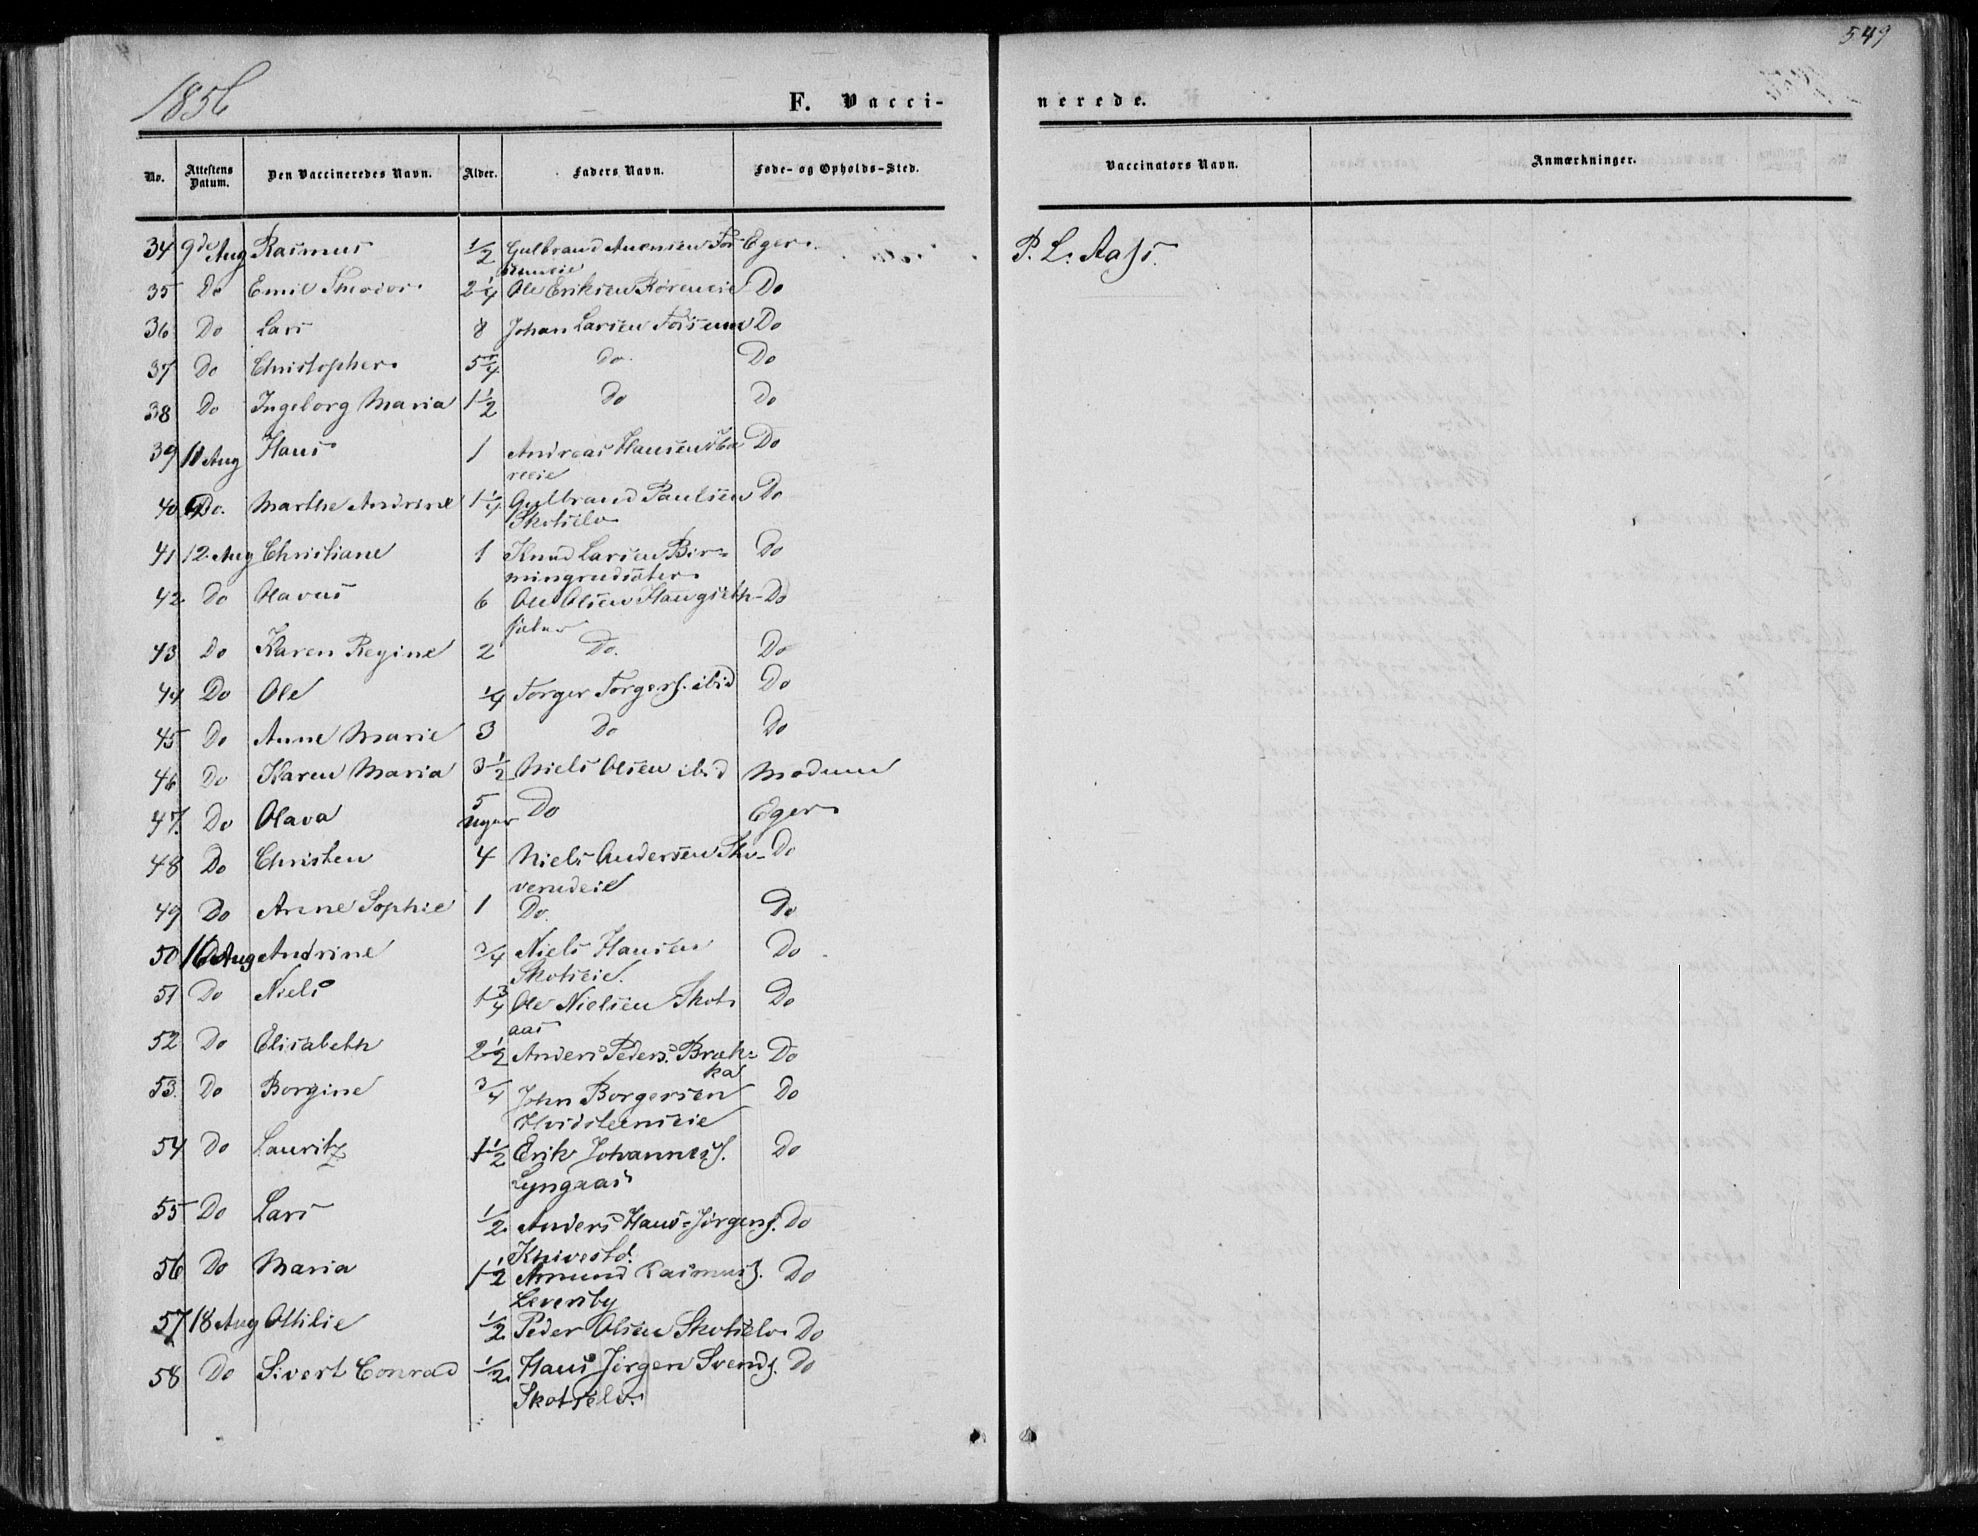 549
1856
F. Vacci-
nerede.
No. Attestens Datum. Den Vaccineredes Navn. Alder. Faders Navn. Føde- og Opholds-Sted. Vaccinators Navn. Anmærkninger.
34 9de Aug Rasmus 1/2 Gulbrand Eger. P. L. Aass.
35 Do Emil Theodor 2 1/4 Ole Eriksen Do
36 Do Lars 8 Johan Larsen Fossum Do
37 Do Christopher 5 Do Do
38 Do Ingeborg Maria 1 1/2 Do Do
39 11 Aug Hans 1 Andreas Hansen Do
40 Do. Marthe Andrine 1 1/4 Gulbrand Paulsen Do
Skotselv
41 12. Aug Christiane 1 Knud Larsen Bir= Do
mingrudsæter
42 Do Olavus 6 Ole Olsen Do
43 Do Karen Regine 2 Do. Do
44 Do Ole 1/4 Torger Torgers. ibid Do
45 Do Anne Marie 3 Do Do
46 Do Karen Maria 3 1/2 Niels Olsen ibid Modum
47. Do Olava 5 Uger Do Eger
48 Do Christen 4 Niels Andersen Do
49 Do Anne Sophie 1 Do. Do
50 16 Aug Andrine 3/4 Niels Hansen Do
Skotseie.
51 Do Niels 1 3/4 Ole Nielsen Skots Do
aas
52 Do Elisabeth 2 1/2 Anders Peders. Bræk= Do
ka
53. Do Borgine 3/4 John Borgersen Do
Hvidsteenseie
54 Do Lauritz 1 1/2 Erik Johanness. Do
Lyngaas
55 Do Lars 1/2 Anders Hans-Jørgens. Do
Knivestd.
56 Do Maria 1 1/2 Amund Rasmuss. Do
Leversby
57 18 Aug Ottilie 1/2 Peder Olsen Skotselv Do
58 Do Sivert Conrad 1/2 Hans Jørgen Svends. Do
Skotselv.